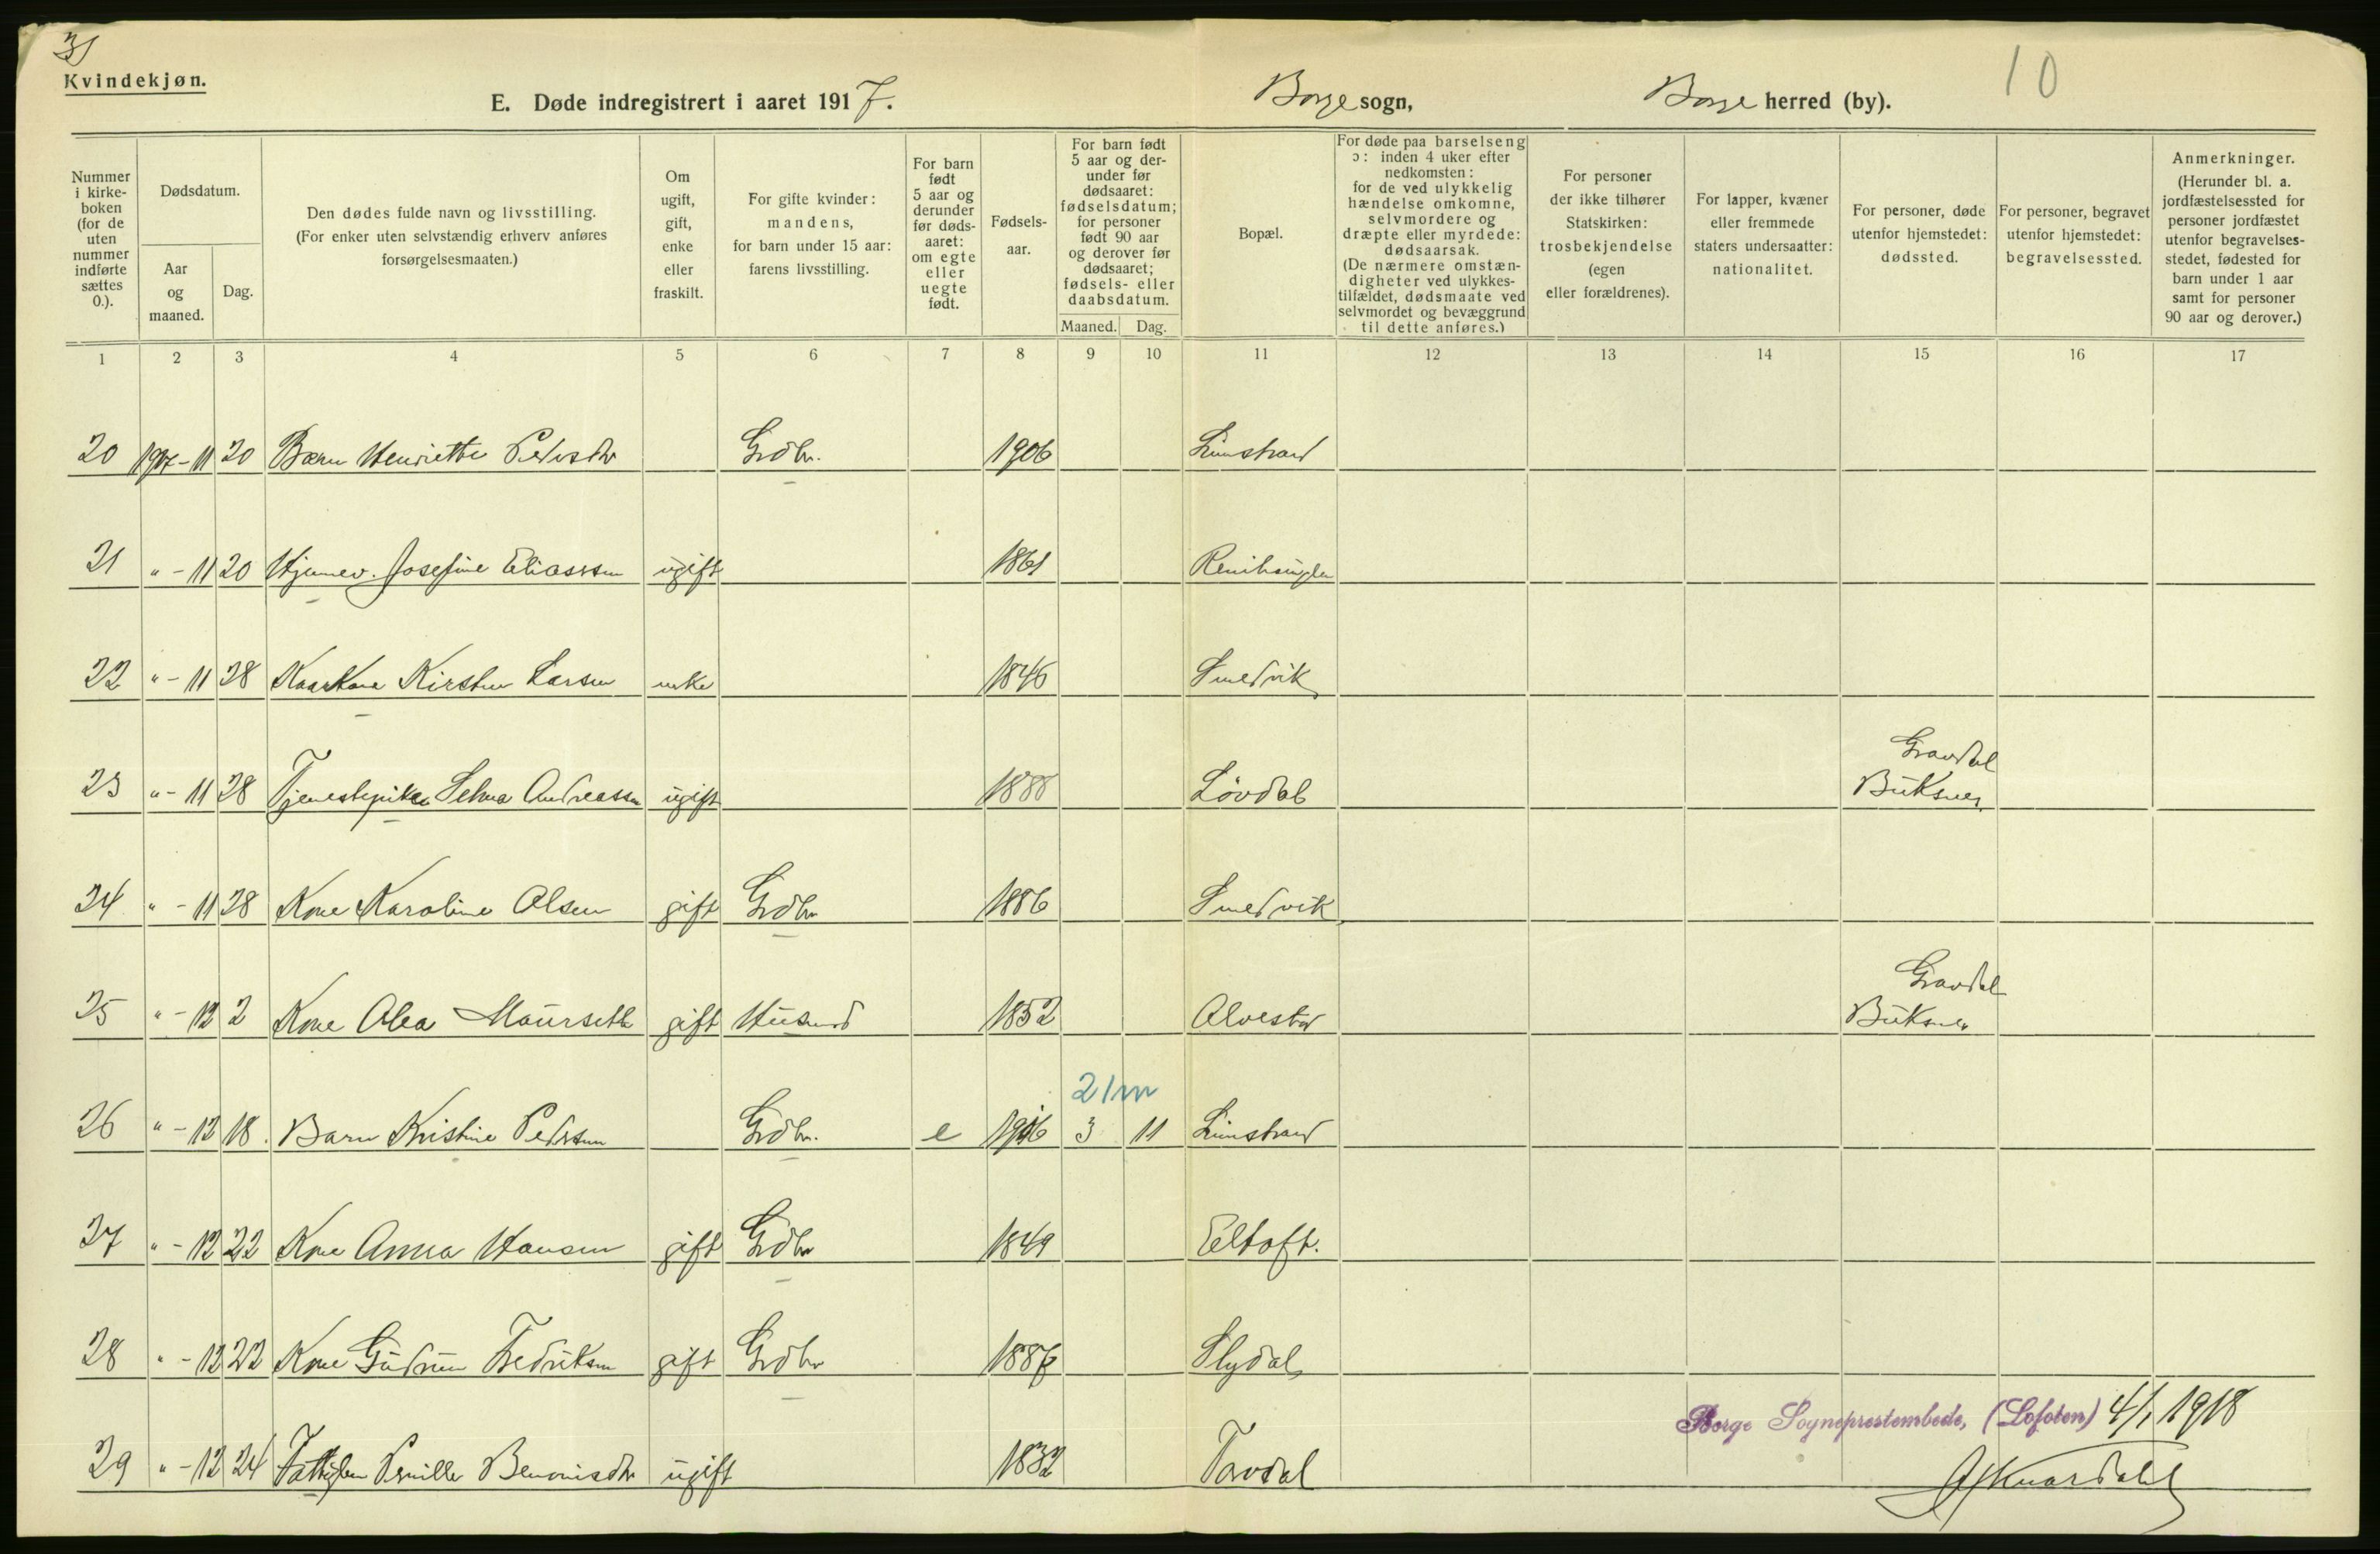 3)
Kvindekjøn.
E. Døde indregistrert i aaret 1917.
Borge sogn,
Borge herred (by).
10
Nummer i kirke- boken (for de uten nummer indførte sættes 0.).
Dødsdatum.
Aar og maaned.
Dag.
Den dødes fulde navn og livsstilling.
(For enker uten selvstændig erhverv anføres
forsørgelsesmaaten.)
Om ugift, gift, enke eller fraskilt.
For gifte kvinder: mandens, for barn under 15 aar: farens livsstilling.
For barn født 5 aar og derunder før døds- aaret: om egte eller uegte født.
Fødsels- aar.
For barn født 5 aar og der- under før dødsaaret: fødselsdatum; for personer født 90 aar og derover før dødsaaret; fødsels- eller daabsdatum.
Maaned. Dag.
Bopæl.
For døde paa barselseng ɔ: inden 4 uker efter nedkomsten: for de ved ulykkelig hændelse omkomne, selvmordere og dræpte eller myrdede: dødsaarsak. (De nærmere omstæn- digheter ved ulykkes- tilfældet, dødsmaate ved selvmordet og bevæggrund til dette anføres.)
For personer der ikke tilhører Statskirken: trosbekjendelse (egen eller forældrenes).
For lapper, kvæner eller fremmede staters undersaatter: nationalitet.
For personer, døde utenfor hjemstedet: dødssted.
For personer, begravet utenfor hjemstedet: begravelsessted.
Anmerkninger. (Herunder bl. a. jordfæstelsessted for personer jordfæstet utenfor begravelses- stedet, fødested for barn under 1 aar samt for personer 90 aar og derover.)
1 2 3 4 5 6 7 8 9 10 11 12 13 14 15 16 17
20 1917-11 20 Barn Henriette Pedersdtr Grdbr. 1906 Limstrand
21 " - 11 20 Hjemmev. Josefine Eliassen ugift 1861
22 " - 11 28 Kaarkone Kirsten Larsen enke 1846 Smedvik
Gravdal
23 " - 11 28 Tjenestepike Selma Andreassen ugift 1888 Løvdal Buksnes
24 " - 11 28 Kone Karoline Olsen gift Grdbr 1886 Smedvik
Gravdal
25 " - 12 2 Kone Olea Maurseth gift Husmd 1852 Alvestad Buksnes
21m
26 " - 12 18. Barn Kristine Pedersen Grdbr. e 1916 3 11 Limstrand
27 " - 12 22 Kone Anna Hansen gift Grdbr 1849 Eltoft.
28 " - 12 22 Kone Gudrun Fredriksen gift Grdbr 1887 Slydal
Borge Sogneprestembede, (Lofoten) 4/1 1918
29 " - 12 24 Fattiglem Pernille Benonisdtr ugift 1832 Torvdal